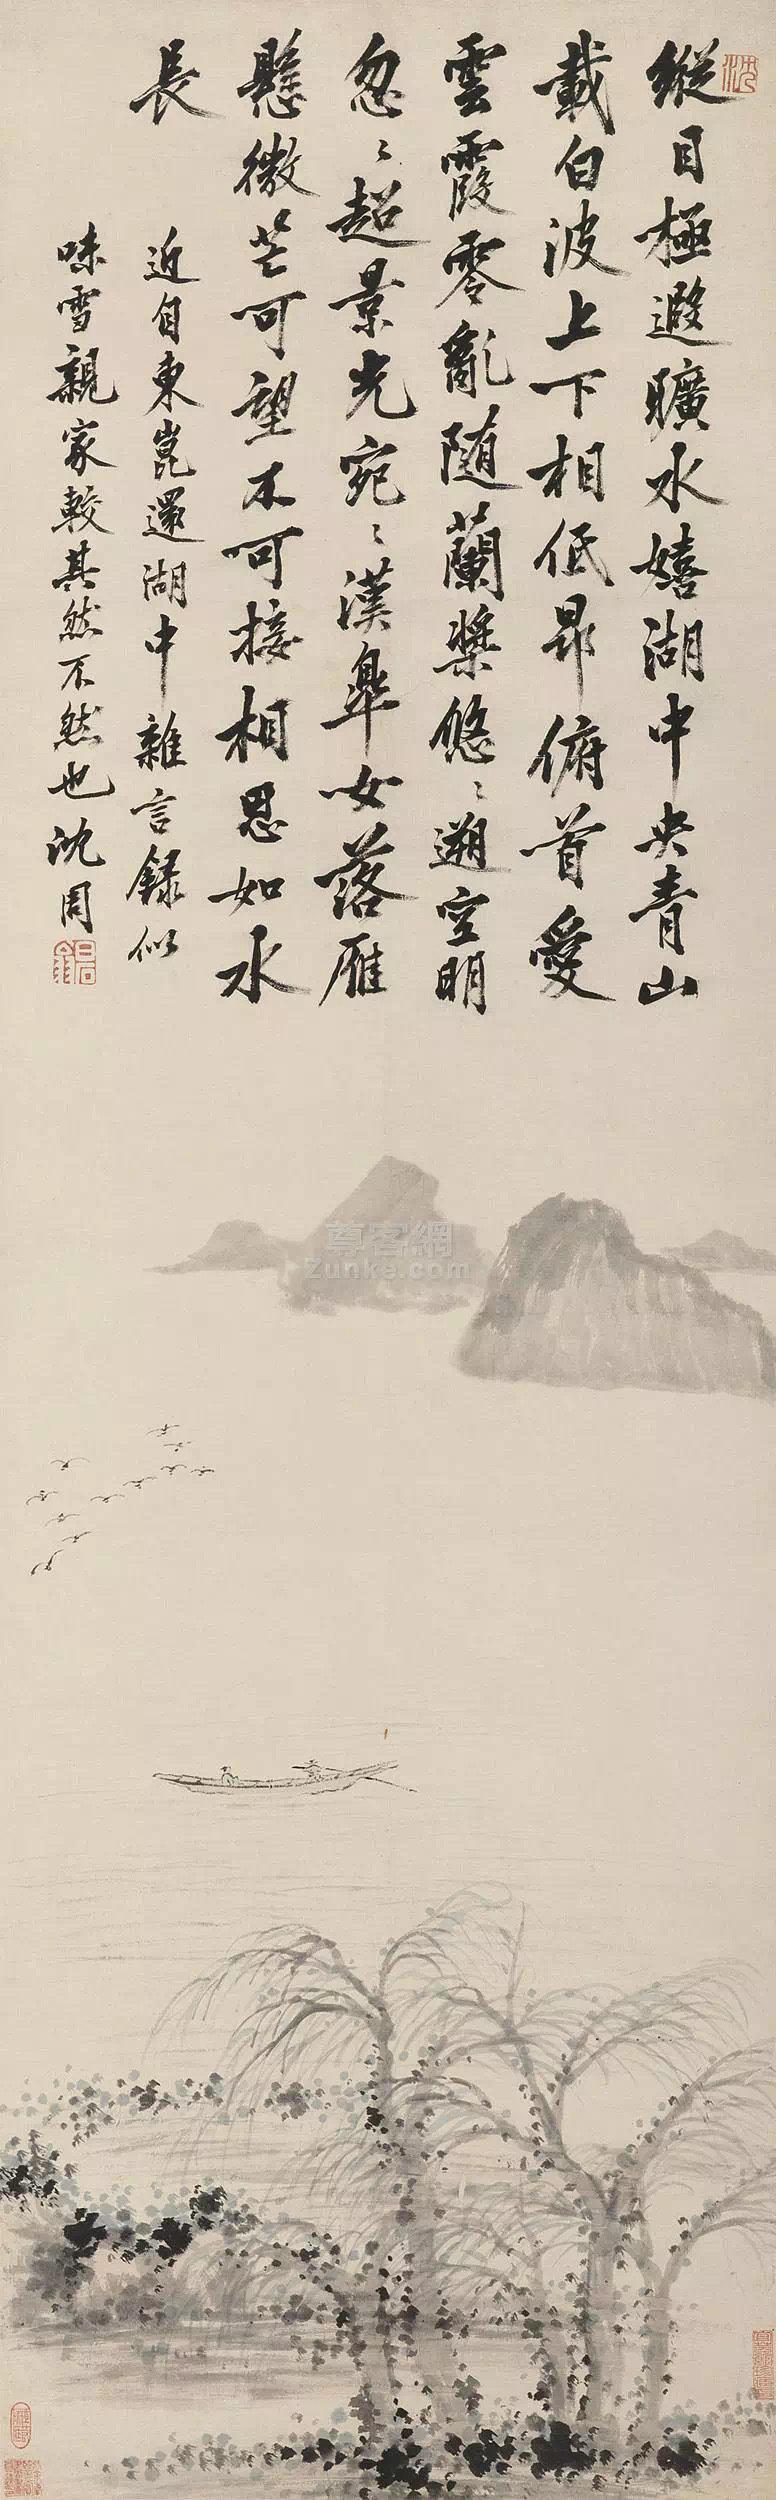 縱目極遐曠水嬉湖中央青山
載白波上下相低昂俯首愛
雲霞零亂隨蘭槳悠〻遡空明
忽〻超景光宛〻漢皐女落雁
懸微芒可望不可接相思如水
長
近自東崑還湖中雜言録似
味雪親家較其然不然也沈周
尊客網
Zunke.com